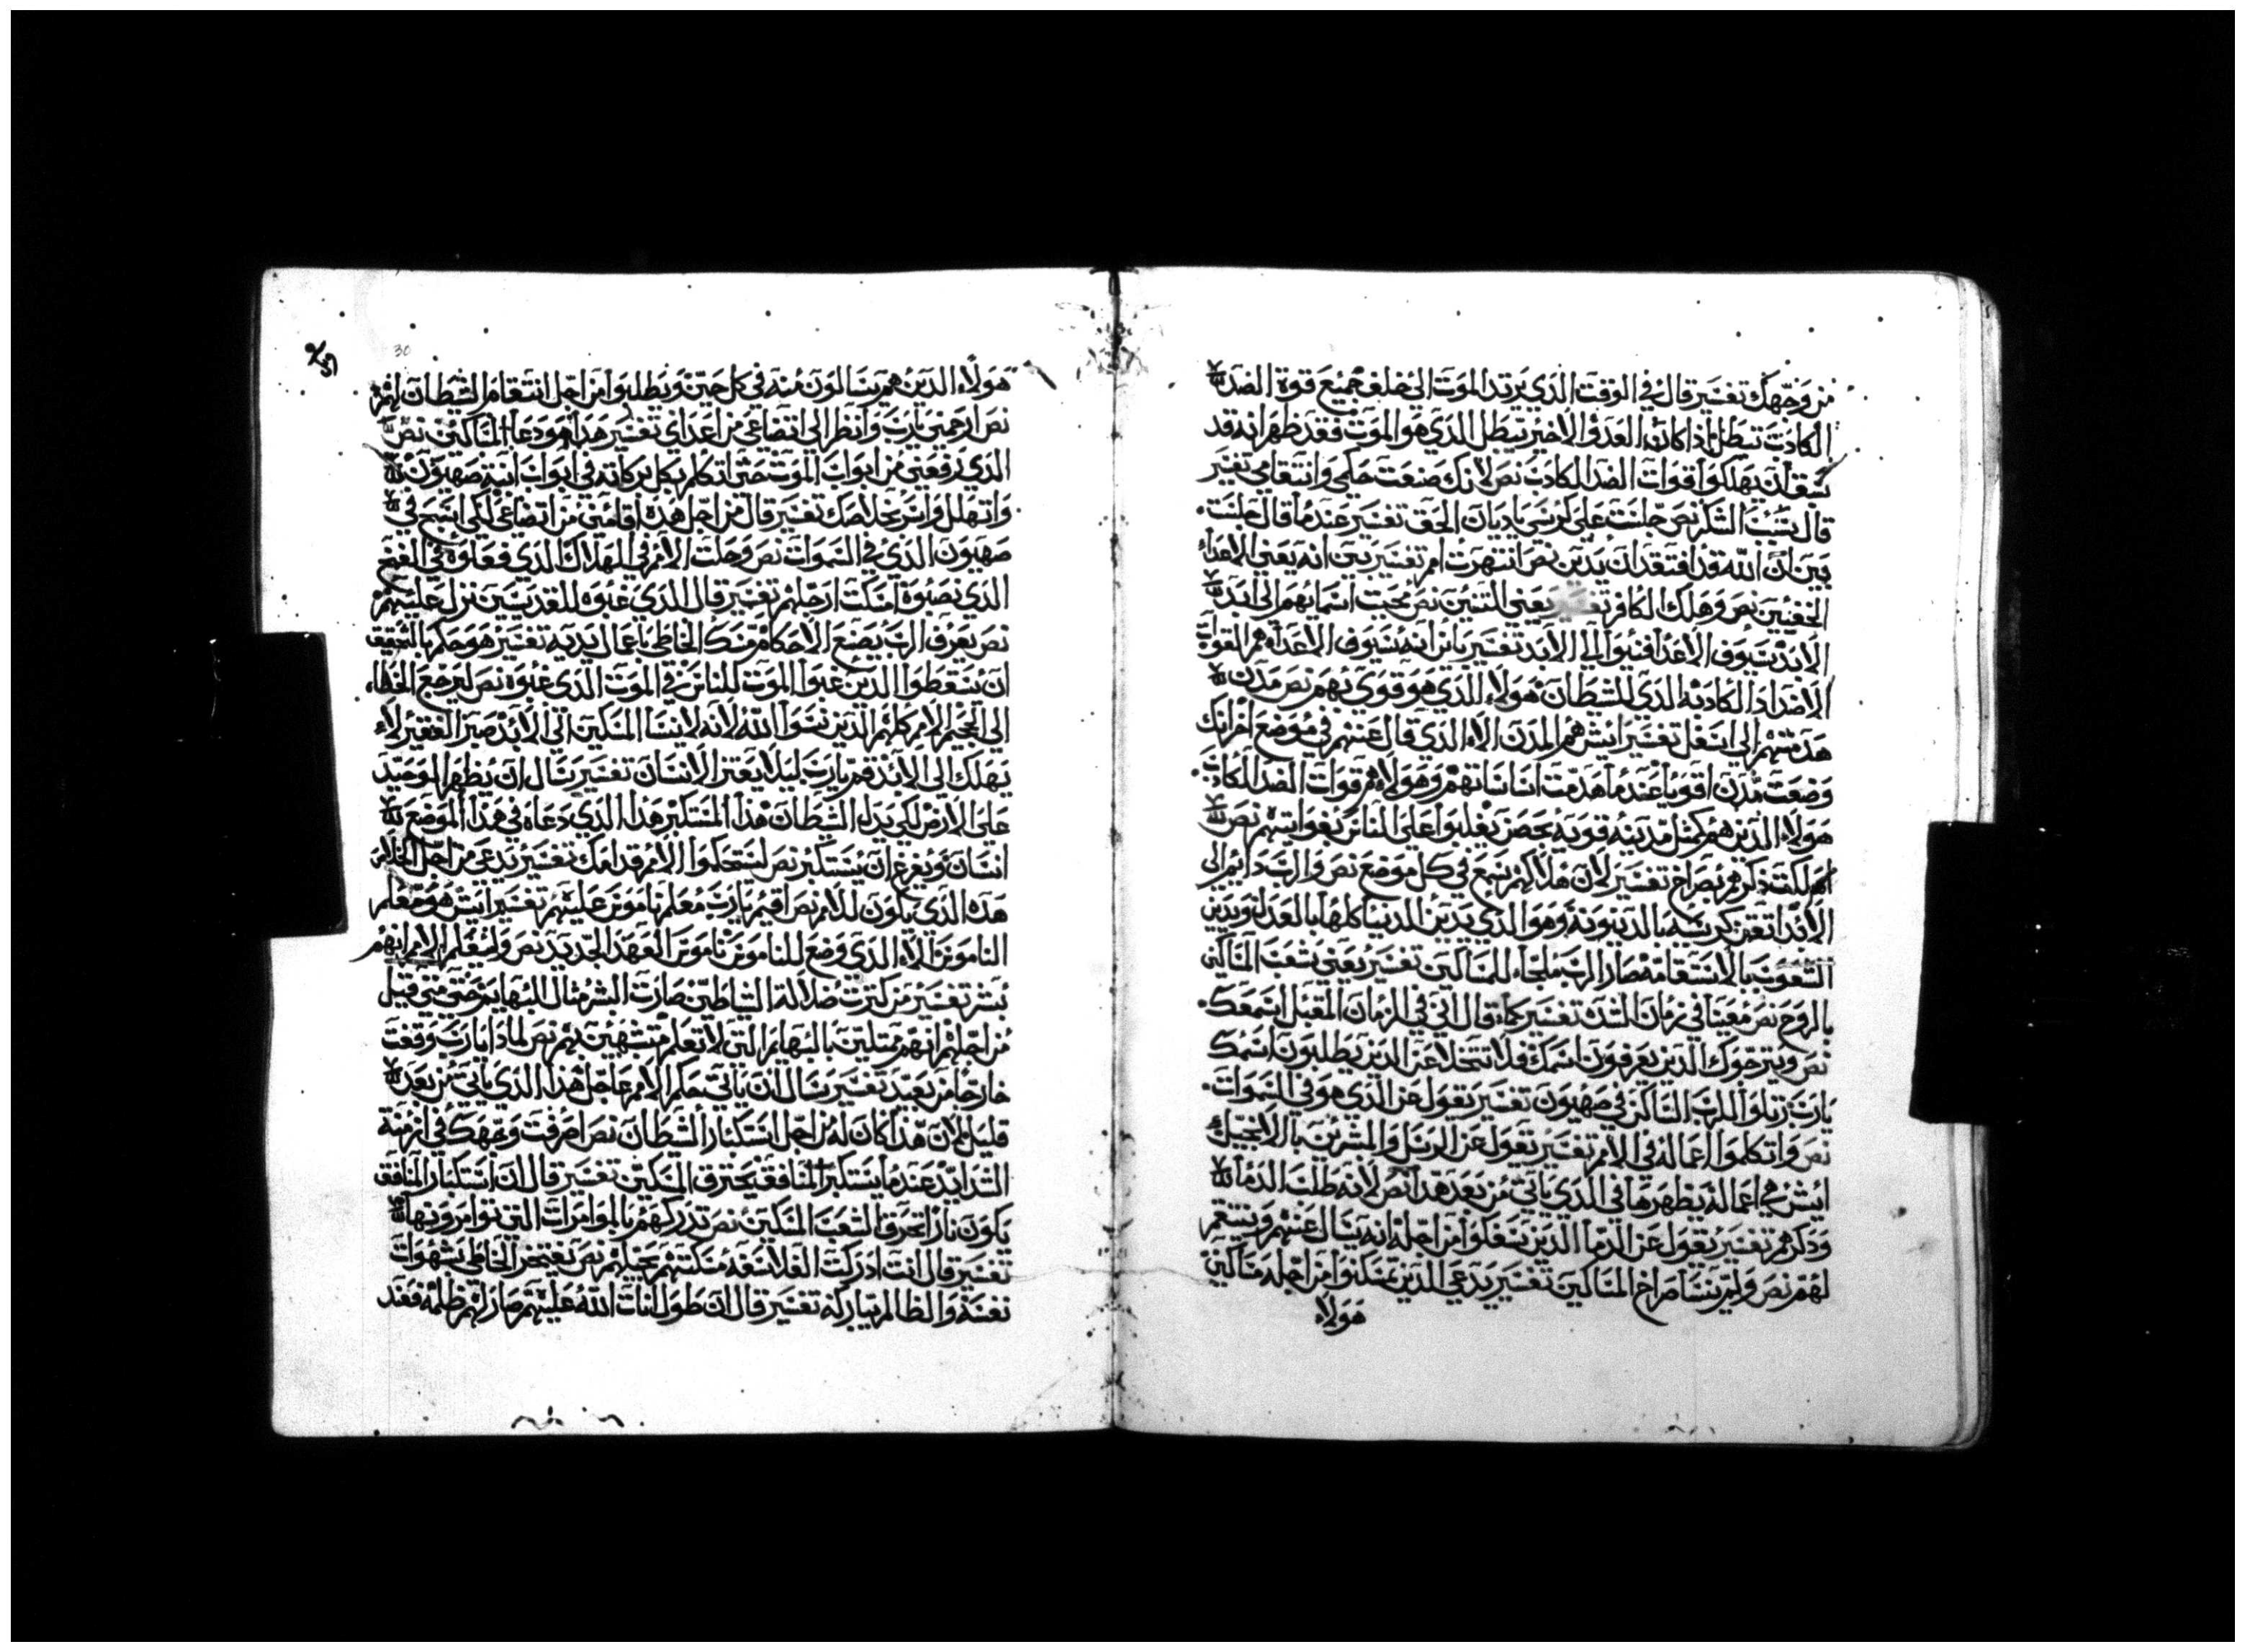 من وجهك تفسير قال في الوقت الذي يرتد الموت الى خلف جميع قوة الضد
الكادب تبطل اذا كان العدو الاخير تبطل الذي هو الموت فقد ظهر انه قد
سبق ان يهلكوا قوات الضد الكادب نص لانك صنعت حكمي وانتقامي تفسير
قال بسبب الشكر نص جلست على كرسي ياديان الحق تفسير عندما قال جلست
بين ان الله قد افتقد ان يدين نص انتهرت امم تفسير بين انه يعني الاعداء
الخفيين نص وهلك الكافر تفسير يعني التنين نص محيت اسمايهم الى ابد
الابد سيوف الاعدا فنيوا الى الابد تفسير بانر انه سيوف الاعداء هم القوات
الاضداد الكادبه الدي للشيطان هولاء الذي هو قوي بهم نص مدن
هدمتهم الى اسفل تفسير ايش هم المدن الاء الذي قال عنهم في موضع اخر انك
وضعت مدن اقويا عندما هدمت اساساتهم وهولاء هم قوات الضد الكادب
هولاء الدين هم كمثل مدينه قويه بحصن يغلبوا على الناس بغوايتهم نص
اهلكت ذكرهم بصراخ تفسير لان هلاكهم سمع في كل موضع نص والرب دايم الى
الابد اتقن كرسيه بالدينونة وهو الذي يدين الدنيا كلها بالعدل ويدين
الشعوب بالاستقامه صار الرب ملجاء للمساكين تفسير يعني شعب المساكين
بالروح نص معينا في زمان الشده تفسير كما قال اني في الزمان المقبل اسمعك
نص ويترجوك الدين يعرفون اسمك فلا تتخلا عن الدين يطلبون اسمك
يارب رتلوا للرب الساكن في صهيون تفسير يقول عن الذي هو في السموات
نص واتكلموا اعماله في الامم تفسير يقول عن الرسل والمبشرين بالانجيل
ايش هي اعماله يظهرها في الذي ياتي من بعد هدا نص لانه طلب الدما
ودكرهم تفسير يقول عن الدما الدين يسفكوا من اجله انه يسال عنهم وينتقم
لهم نص ولم ينسا صراخ المساكين تفسير يدعي الدين تمسكنوا من اجله مساكين
هولاء
30
هولاء الدين هم يسالون منه في كل حين ويطلبوا من اجل انتقام الشيطان لهم
نص ارحمني يارب وانظر الى اتضاعي من اعداي تفسير هدا هو دعا المساكين نص
الدي رفعني من ابواب الموت حتى اتكلم بكل بركاته في ابواب ابنة صهيون
واتهلل واسر بخلاصك تفسير قال من اجل هدة اقامني من اتضاعي لكي اسبح في
صهيون الذي في السموات نص وحلت الامم في الهلاك الذي فعلوه في الفخ
الذي نصبوه امسكت ارجلهم تفسير قال الدي غبوه للقديسين نزل عليهم
نص يعرف الرب يصنع الاحكام مسك الخاطي باعمال يديه تفسير هو حكم بالحقيقه
ان يسقطوا الدين غبوا الموت للناس في الموت الدي غبوه نص ليرجع الخطاه
الى الجحيم الامم كلهم الدين نسوا الله لانه لا ينسا المسكين الى الابد صبر الفقير لا
يهلك الى الابد قم يارب ليلا يعتز الانسان تفسير يسال ان يظهر الوحيد
على الارض لكي يدل الشيطان هذا المستكبر هذا الدي دعاه في هذا الموضع
انسان ويفرغ ان يستكبر نص ليتحكموا الامم قدامك تفسير يدعي من اجل الخلاص
هده الذي يكون للامم نص اقيم يارب معلم ناموس عليهم تفسير ايش هو معلم
الناموس الاء الذي وضع للناموس ناموس العهد الجديد نص وليعلم الامم انهم
بشر تفسير من كترت ضلالة الشياطين صارت البشر مثال للبهايم حتى متى قيل
من اجلهم انهم متلين بالبهايم التي لا تعلم متشبهين بهم نص لمادا يارب وقفت
خارجا من بعيد تفسير يسال ان ياتي حكم الامم عاجل هدا الذي ياتي من بعد
قليل لان هذا كان له من اجل استكبار الشيطان نص امرقت وتمهلك في ازمنة
الشدايد عندما يستكبر المنافق يحترق المسكين تفسير قال ان استكبار المنافق
يكون نارا تحرق الشعب المسكين نص تدركهم بالموامرات التي توامرونها
تفسير قال انت ادركت الفلاسفه مسكتهم بحيلهم نص يفتخر الخاطي بشهوات
نفسه والظالم يتباركه تفسير قال ان طول انات الله عليهم صار لهم ظلمه فقد